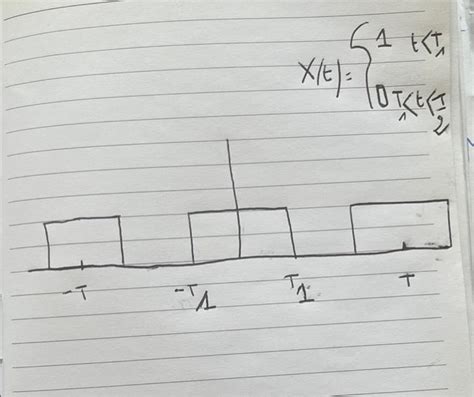 x(t) = { 1 t<T₁
0 T₁<t<T/2
-T -T₁ T₁ T